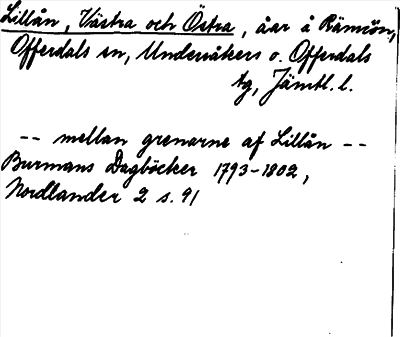 Lillån, Västra och Östra, åar å Rämsön,
Offerdals sn, Undersåkers o. Offerdals
tg, Jämtl. l.
-- mellan grenarne af Lillån --
Burmans Dagböcker 1793-1802,
Nordlander 2 s. 91